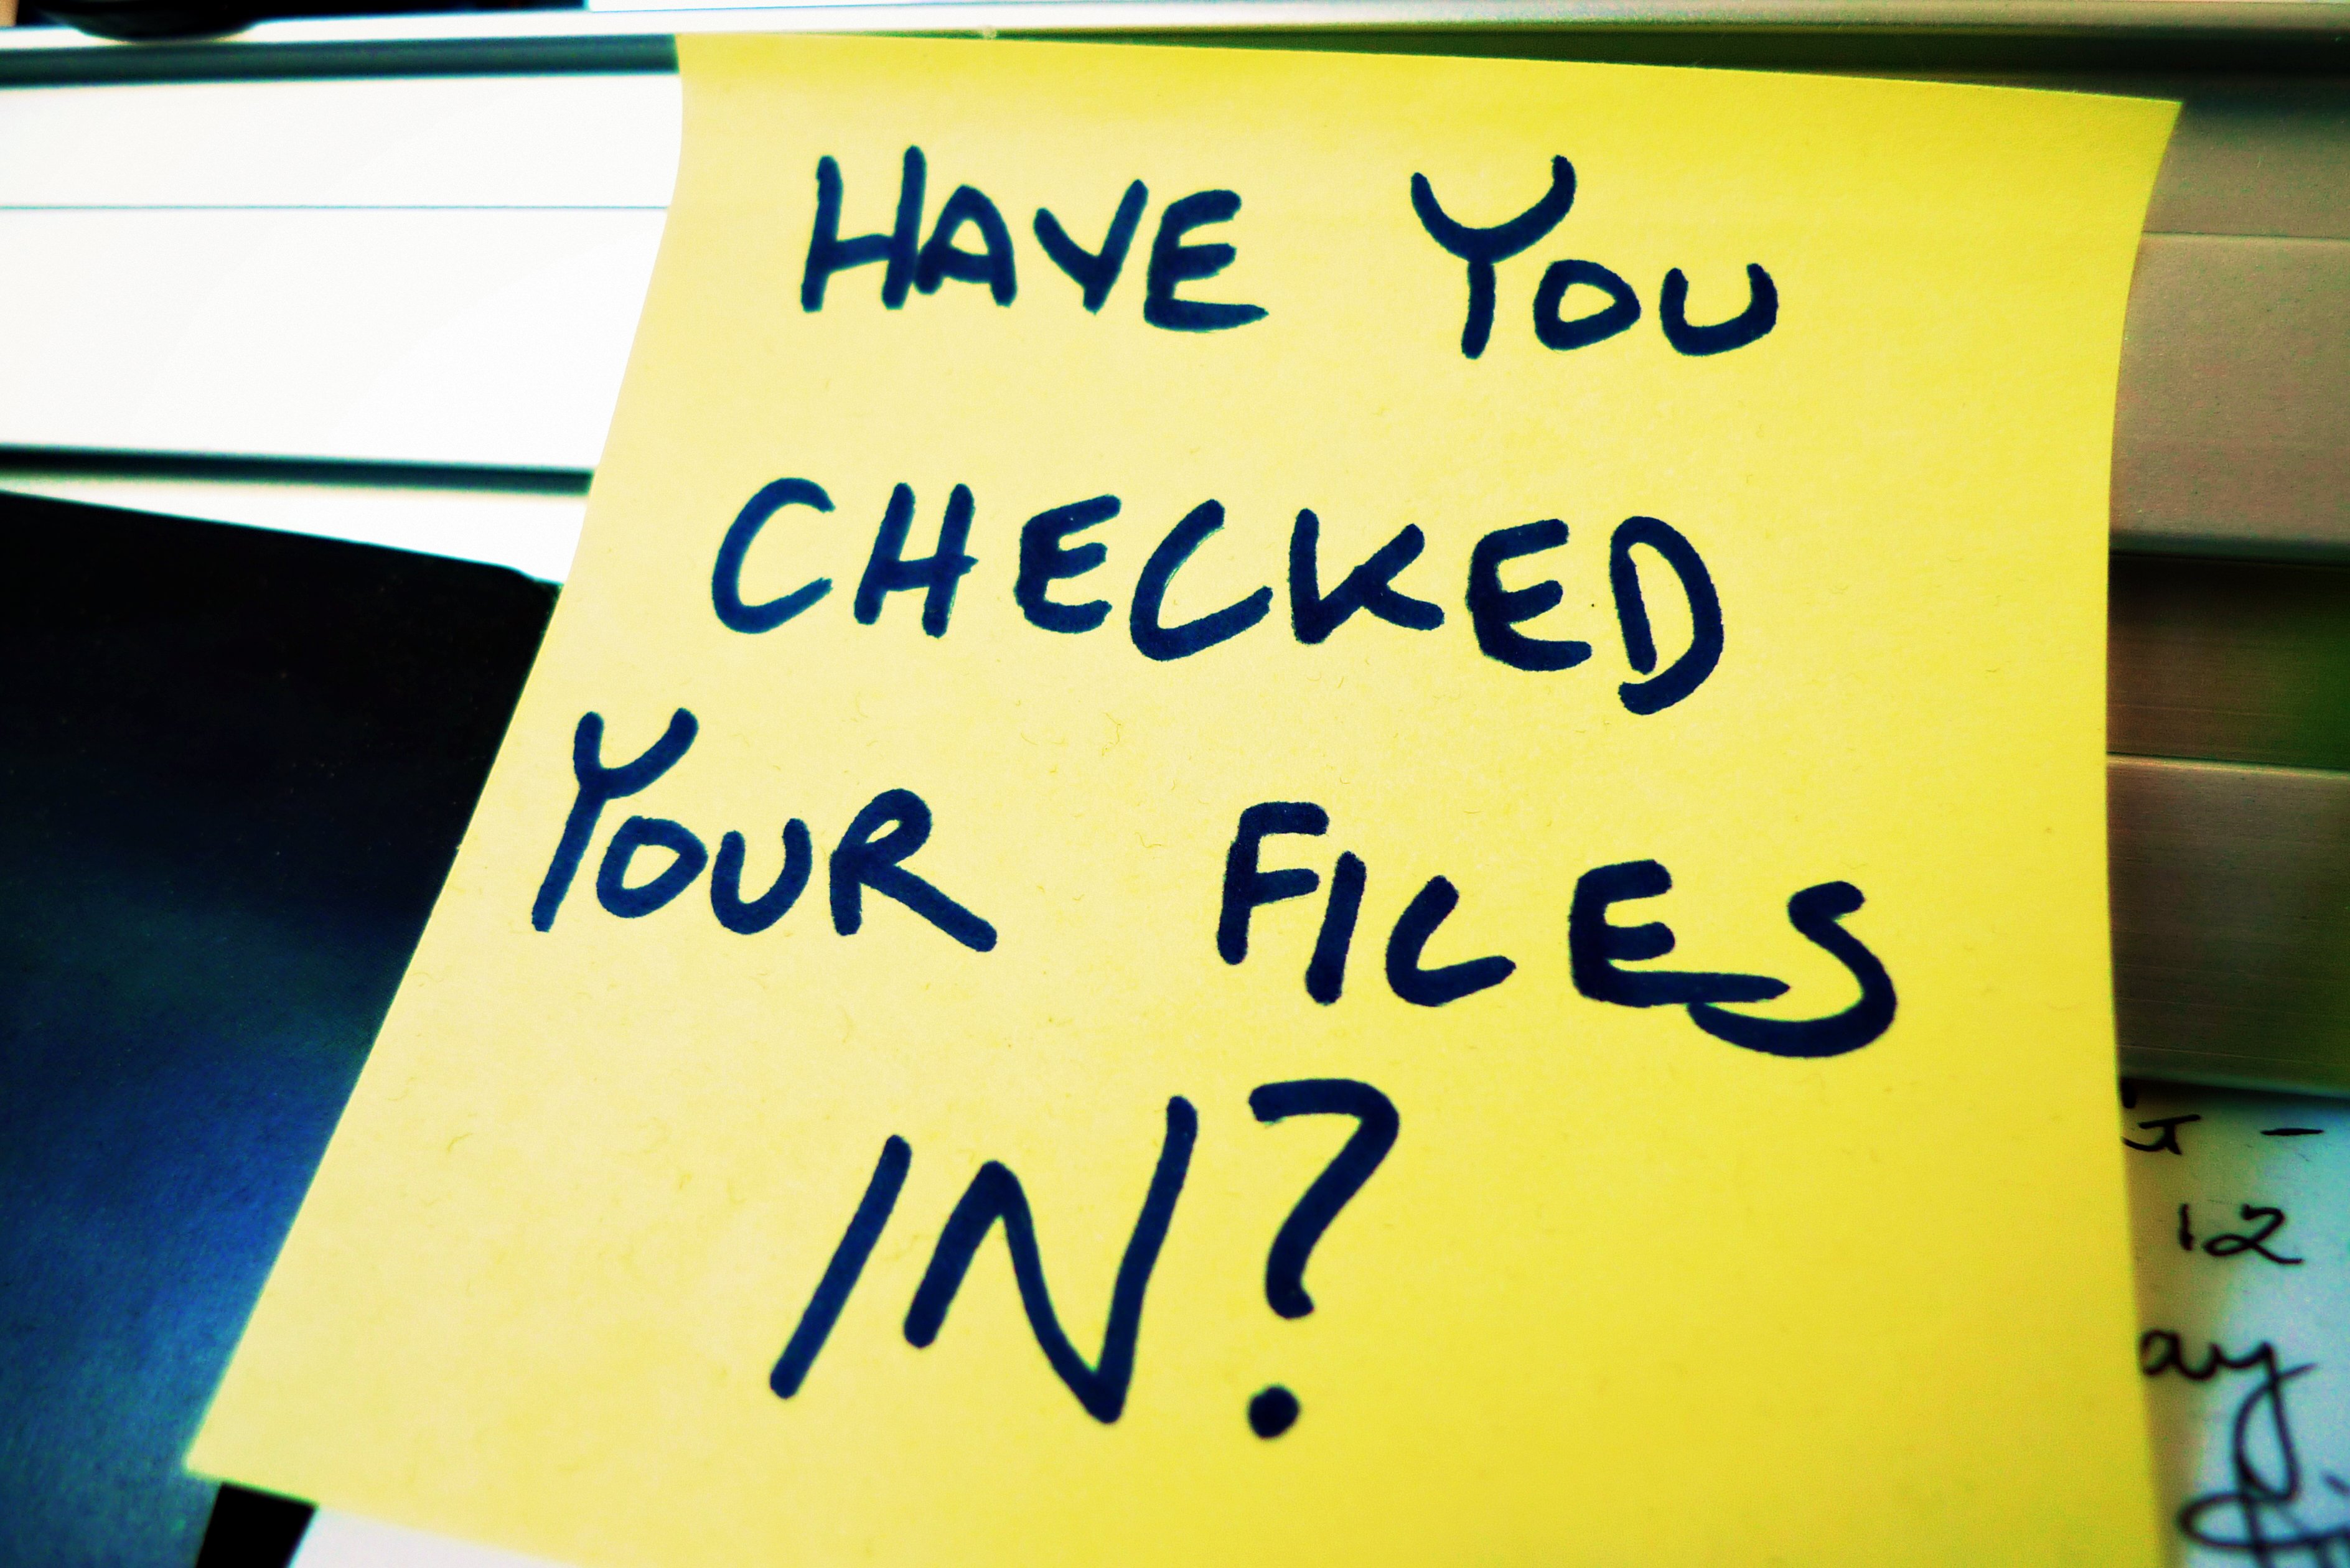 HAVE YOU
CHECKED
YOUR FILES
IN?
12